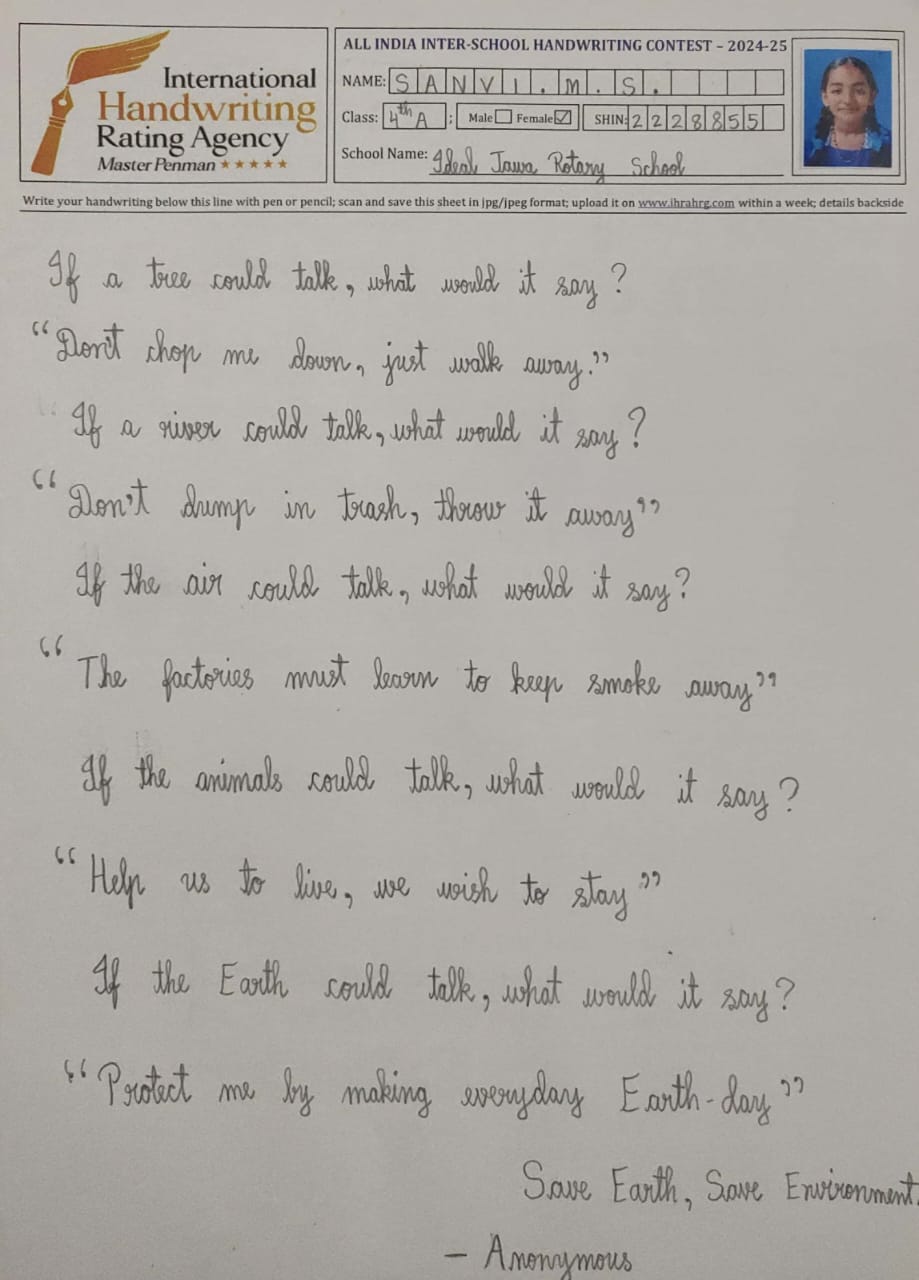 International
Handwriting
Rating Agency
Master Penman ★★★★★
ALL INDIA INTER-SCHOOL HANDWRITING CONTEST – 2024-25
NAME: SANVI.M.S.
Class: 4th A ; Male Female ✓ SHIN: 2228855
School Name: Ideal Jawa Rotary School
Write your handwriting below this line with pen or pencil; scan and save this sheet in jpg/jpeg format; upload it on www.ihrahrg.com within a week; details backside
If a tree could talk, what would it say?
“Don't chop me down, just walk away.”
If a river could talk, what would it say?
“Don't dump in trash, throw it away”
If the air could talk, what would it say?
“The factories must learn to keep smoke away”
If the animals could talk, what would it say?
“Help us to live, we wish to stay”
If the Earth could talk, what would it say?
“Protect me by making everyday Earth-day”
Save Earth, Save Environment.
– Anonymous